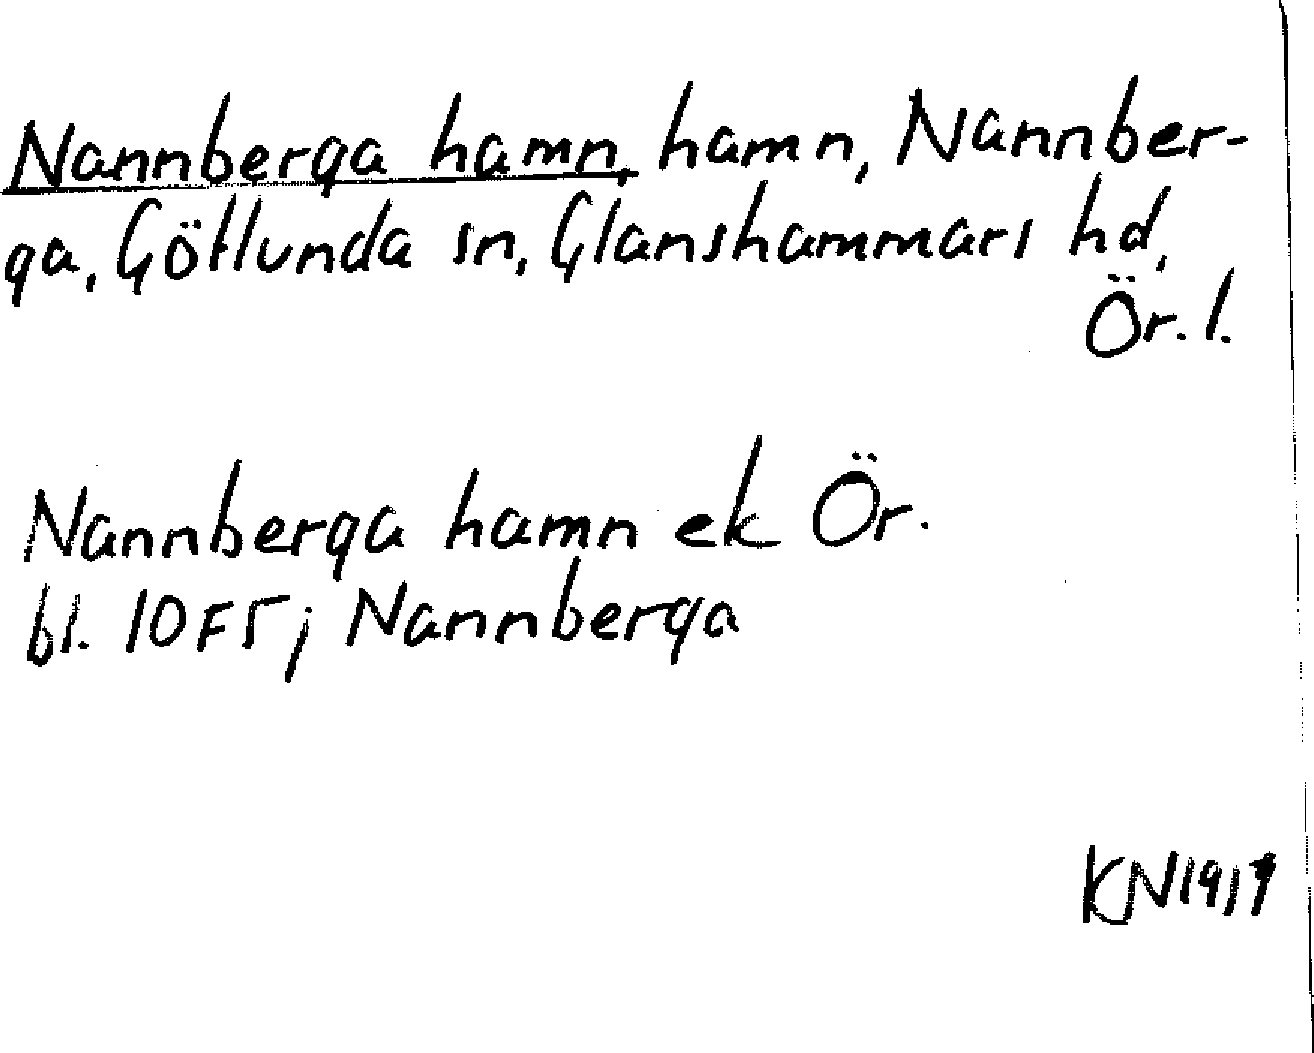 Nannberga hamn, hamn, Nannber-
ga, Götlunda sn, Glanshammars hd,
Ör. l.
Nannberga hamn ek Ör.
bl. 10F5; Nannberga